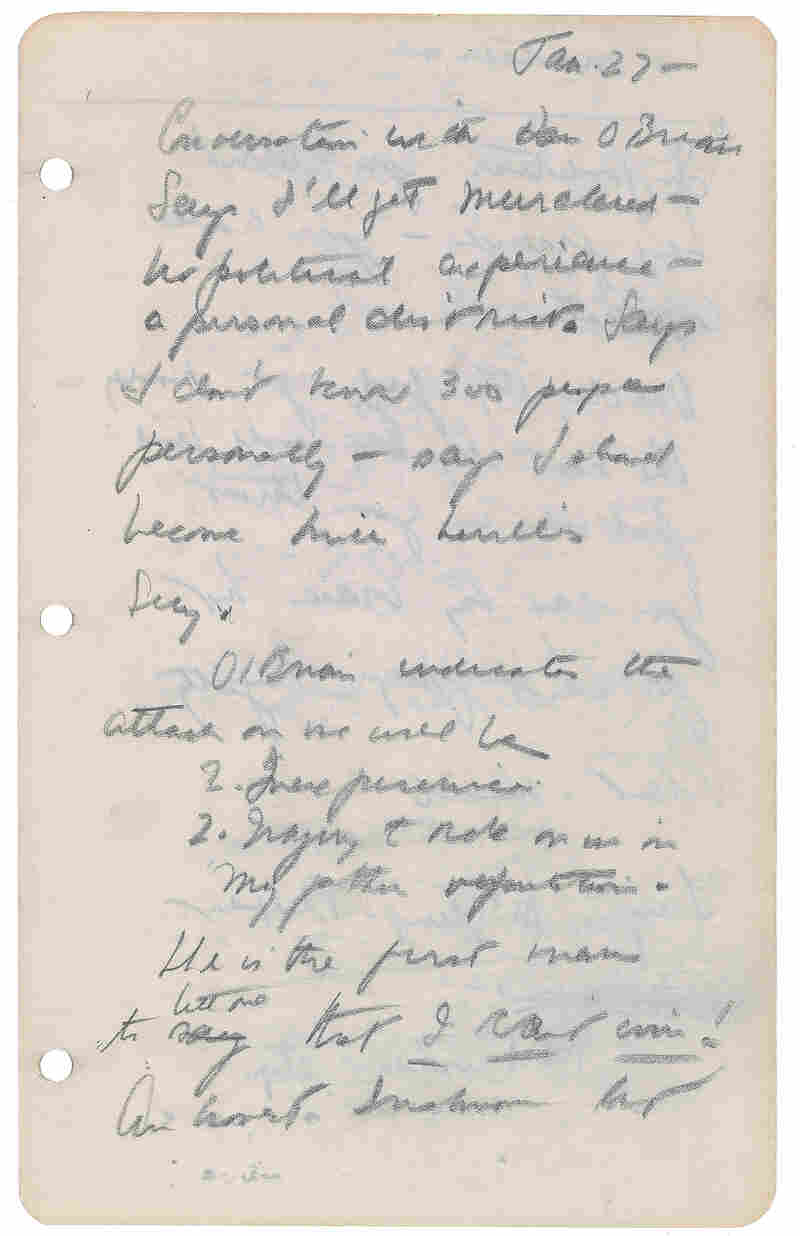 Jan. 27 –
Conversation with Dan O'Brien
Says I'll get murdered –
No political experience –
a personal district. Says
I don't know 300 people
personally – says I should
become Mike Neville's
Secy.
O'Brien indicates the
attack on me will be
1. Inexperience
2. Injury to me on
my father's reputation.
He is the first man
to bet me that I can't win!
An honest Irishman but